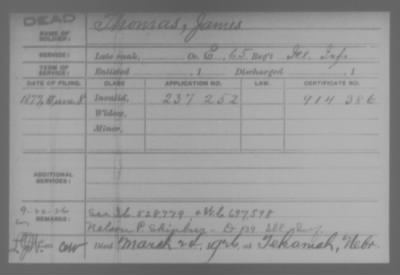 DEAD
NAME OF SOLDIER: Thomas, James
SERVICE: Late rank, Co. E, 65 Reg't Ill. Inf.
TERM OF SERVICE: Enlisted , 1 Discharged , 1
DATE OF FILING. CLASS APPLICATION NO. LAW. CERTIFICATE NO.
1877, Invalid, 237 252 914 386
Widow,
Minor,
ADDITIONAL SERVICES:
9-22-26 528,779
REMARKS: Nelson P.
Died March 20, 1926, at Tekamah, Nebr.